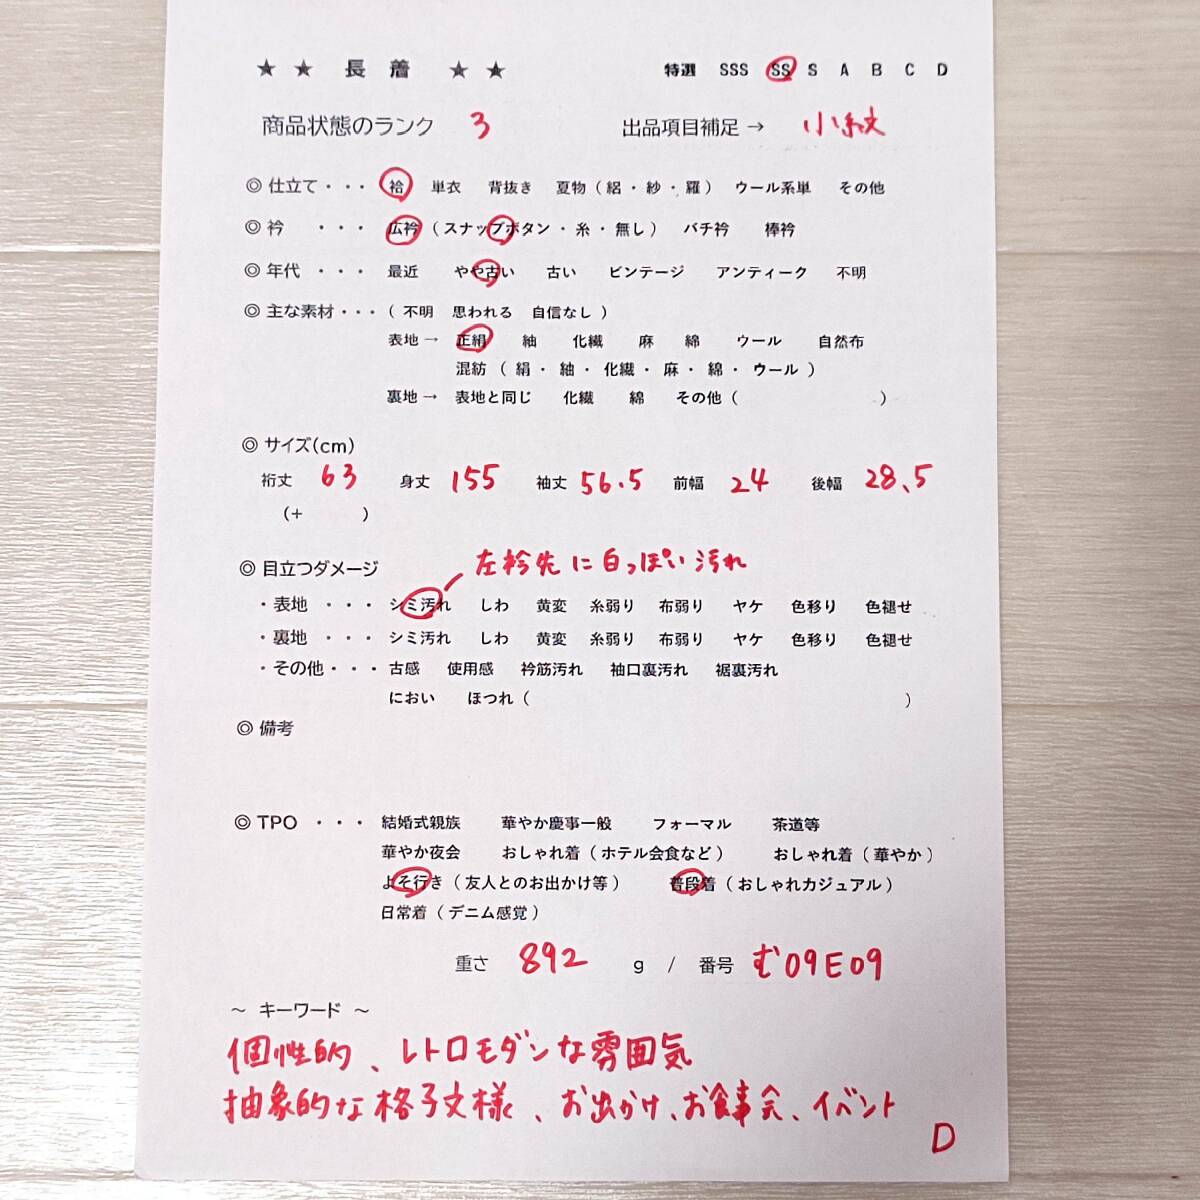 ★ ★ 長 着 ★ ★ 特選 SSS SS S A B C D
商品状態のランク 3 出品項目補足 → 小紋
◎ 仕立て・・・ 袷 単衣 背抜き 夏物（絽・紗・羅） ウール系単 その他
◎ 衿 ・・・ 広衿（スナップボタン・糸・無し） バチ衿 棒衿
◎ 年代 ・・・ 最近 やや古い 古い ビンテージ アンティーク 不明
◎ 主な素材・・・（ 不明 思われる 自信なし ）
表地 → 正絹 紬 化繊 麻 綿 ウール 自然布
混紡 （ 絹・ 紬・ 化繊・ 麻・ 綿・ ウール ）
裏地 → 表地と同じ 化繊 綿 その他（ ）
◎ サイズ(cm)
裄丈 63 身丈 155 袖丈 56.5 前幅 24 後幅 28.5
（+ ）
左衿先に白っぽい汚れ
◎ 目立つダメージ
・表地 ・・・ シミ汚れ しわ 黄変 糸弱り 布弱り ヤケ 色移り 色褪せ
・裏地 ・・・ シミ汚れ しわ 黄変 糸弱り 布弱り ヤケ 色移り 色褪せ
・その他・・・ 古感 使用感 衿筋汚れ 袖口裏汚れ 裾裏汚れ
におい ほつれ（ ）
◎ 備考
◎ TPO ・・・ 結婚式親族 華やか慶事一般 フォーマル 茶道等
華やか夜会 おしゃれ着（ホテル会食など） おしゃれ着（華やか）
よそ行き（友人とのお出かけ等） 普段着（おしゃれカジュアル）
日常着（デニム感覚）
重さ 892 g / 番号 む09E09
～ キーワード ～
個性的、レトロモダンな雰囲気
抽象的な格子文様、お出かけ、お食事会、イベント
D